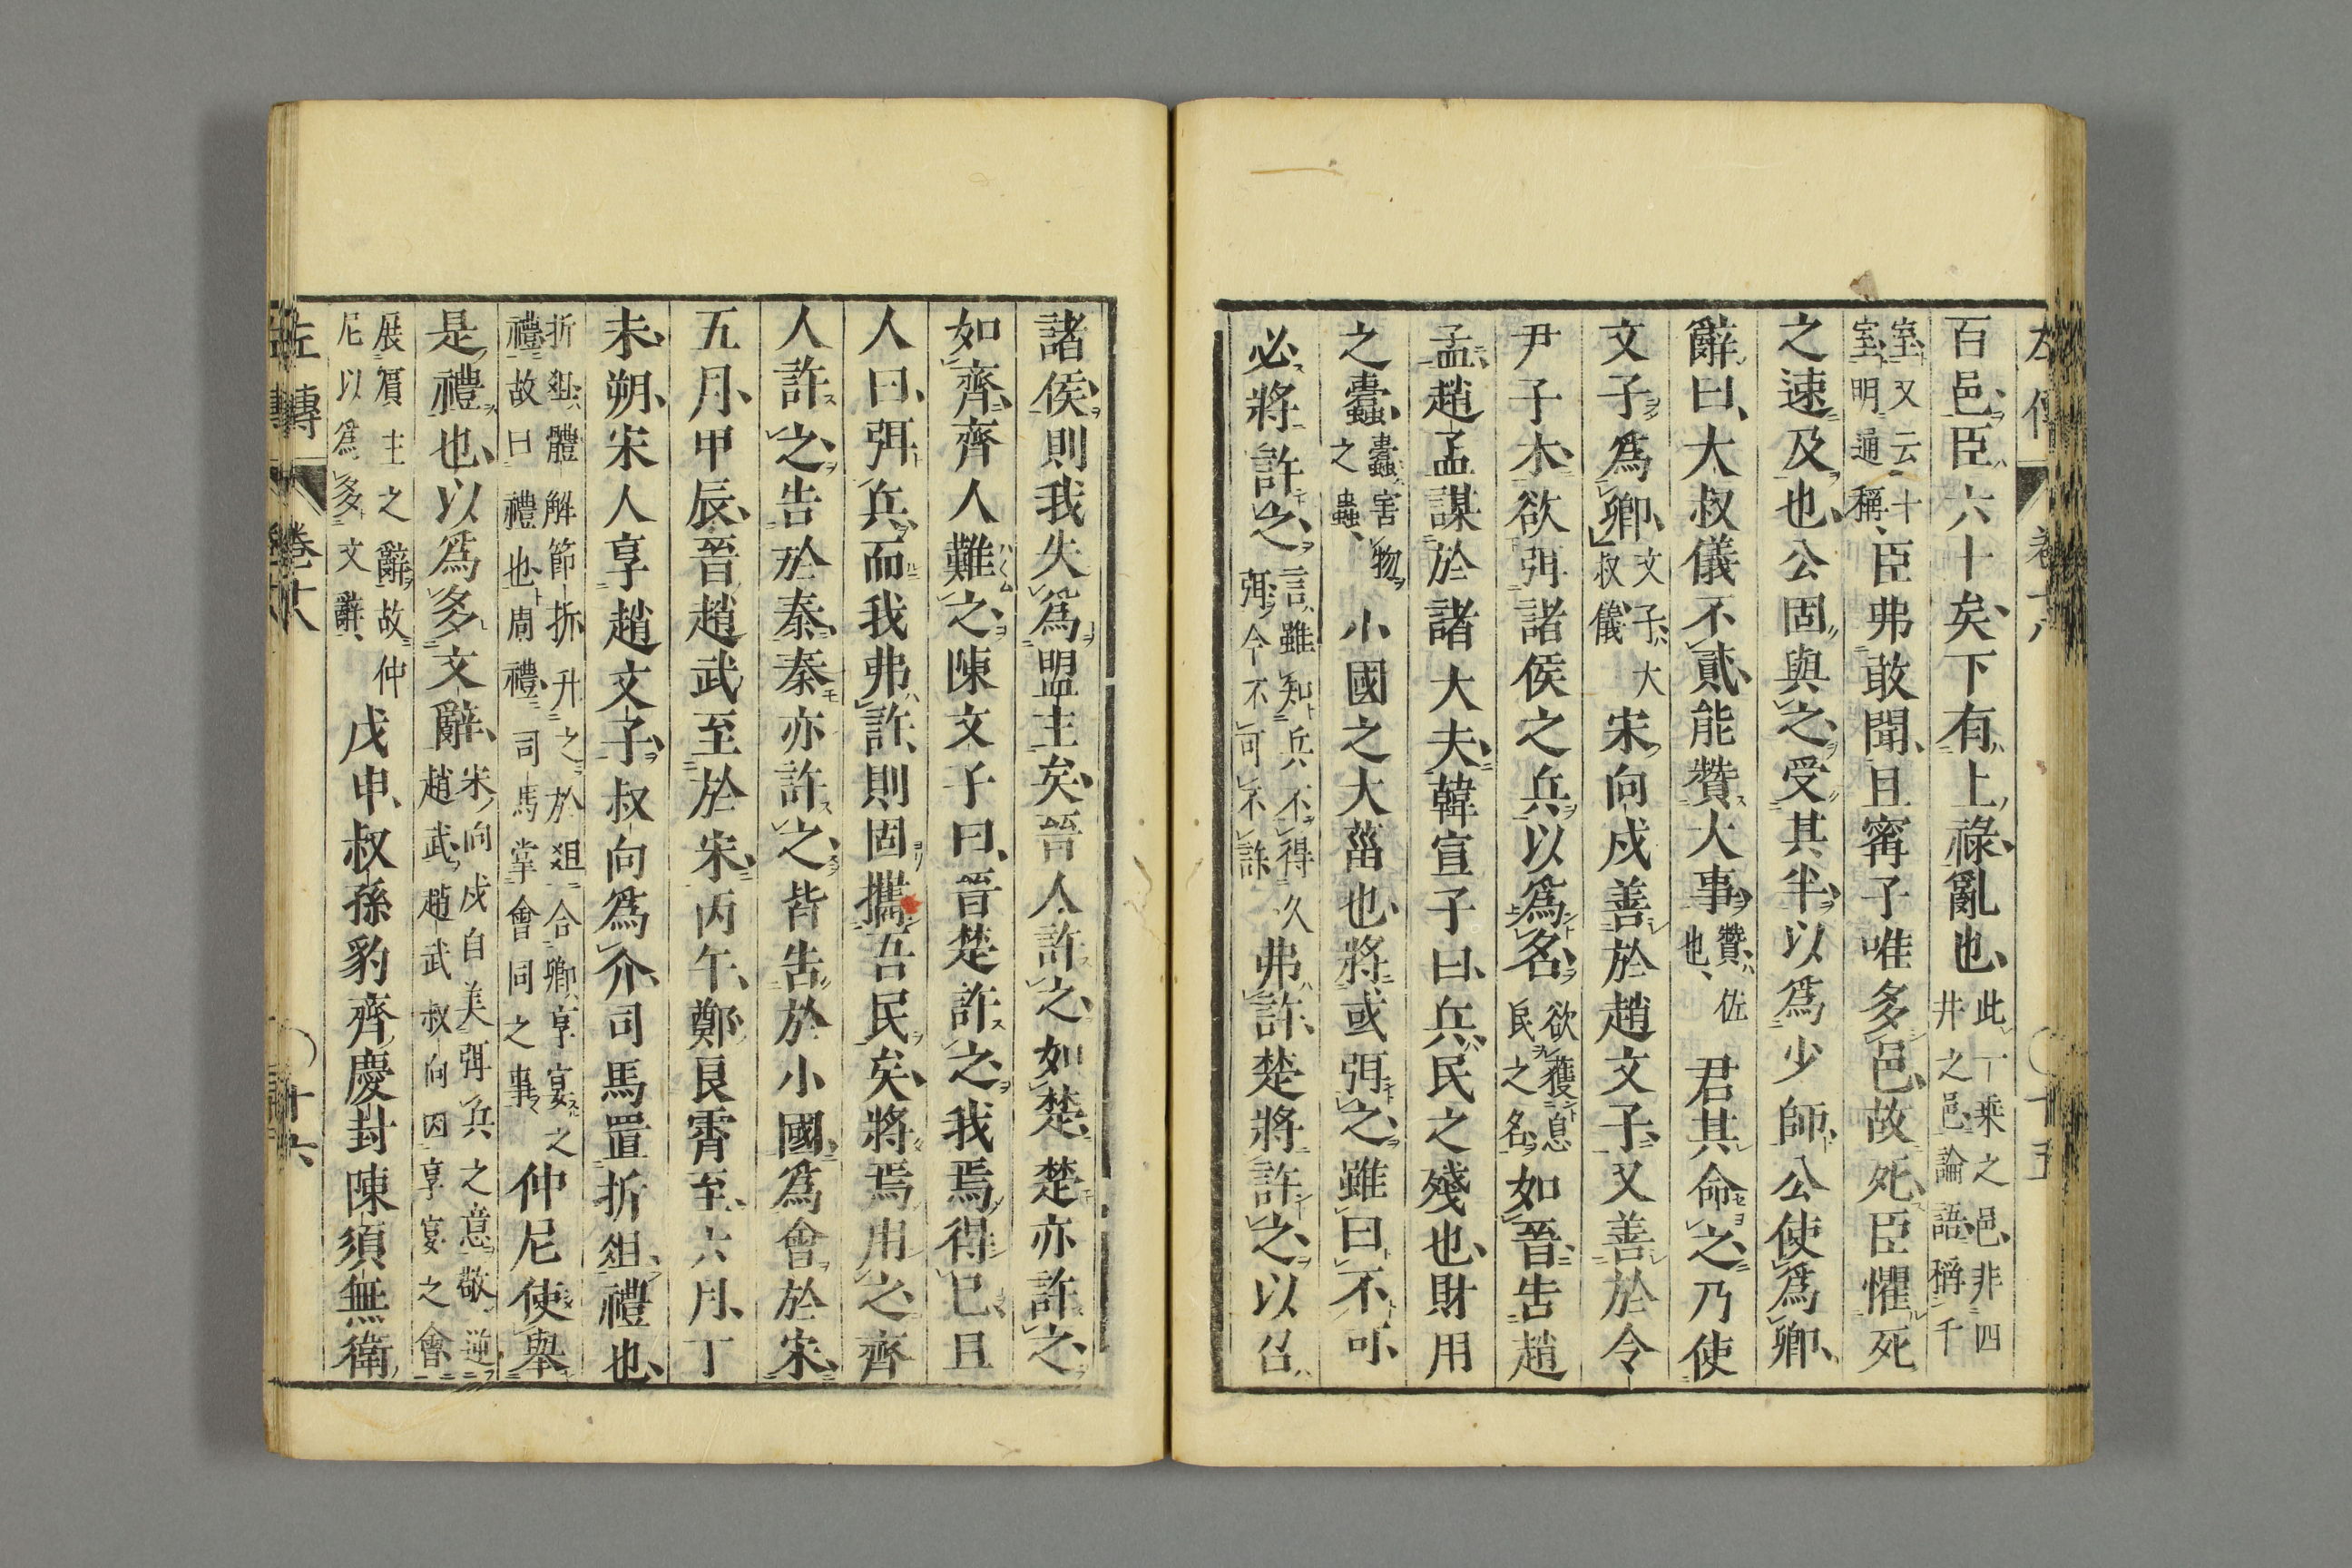 百邑臣六十矣下有上祿亂也此一乘之邑非四井之邑論語稱千
室又云十室明通稱臣弗敢聞且甯子唯多邑故死臣懼死
之速及也公固與之受其半以爲少師公使爲卿
辭曰大叔儀不貳能贊大事贊佐也君其命之乃使
文子爲卿文子大叔儀宋向戌善於趙文子又善於令
尹子木欲弭諸侯之兵以爲名欲獲息民之名如晉告趙
孟趙孟謀於諸大夫韓宣子曰兵民之殘也財用
之蠹蠹害物之蟲小國之大菑也將或弭之雖曰不可
必將許之言雖知兵不得久弭今不可不許弗許楚將許之以召
諸侯則我失爲盟主矣晉人許之如楚楚亦許之
如齊齊人難之陳文子曰晉楚許之我焉得已且
人曰弭兵而我弗許則固攜吾民矣將焉用之齊
人許之告於秦秦亦許之皆告於小國爲會於宋
五月甲辰晉趙武至於宋丙午鄭良霄至六月丁
未朔宋人享趙文子叔向爲介司馬置折俎禮也
折俎體解節折升之於俎合卿享宴之禮故曰禮也周禮司馬掌會同之事仲尼使舉
是禮也以爲多文辭宋向戌自美弭兵之意敬逆趙武趙武叔向因享宴之會
展賓主之辭故仲尼以爲多文辭戊申叔孫豹齊慶封陳須無衛
左傳 卷十八 十六